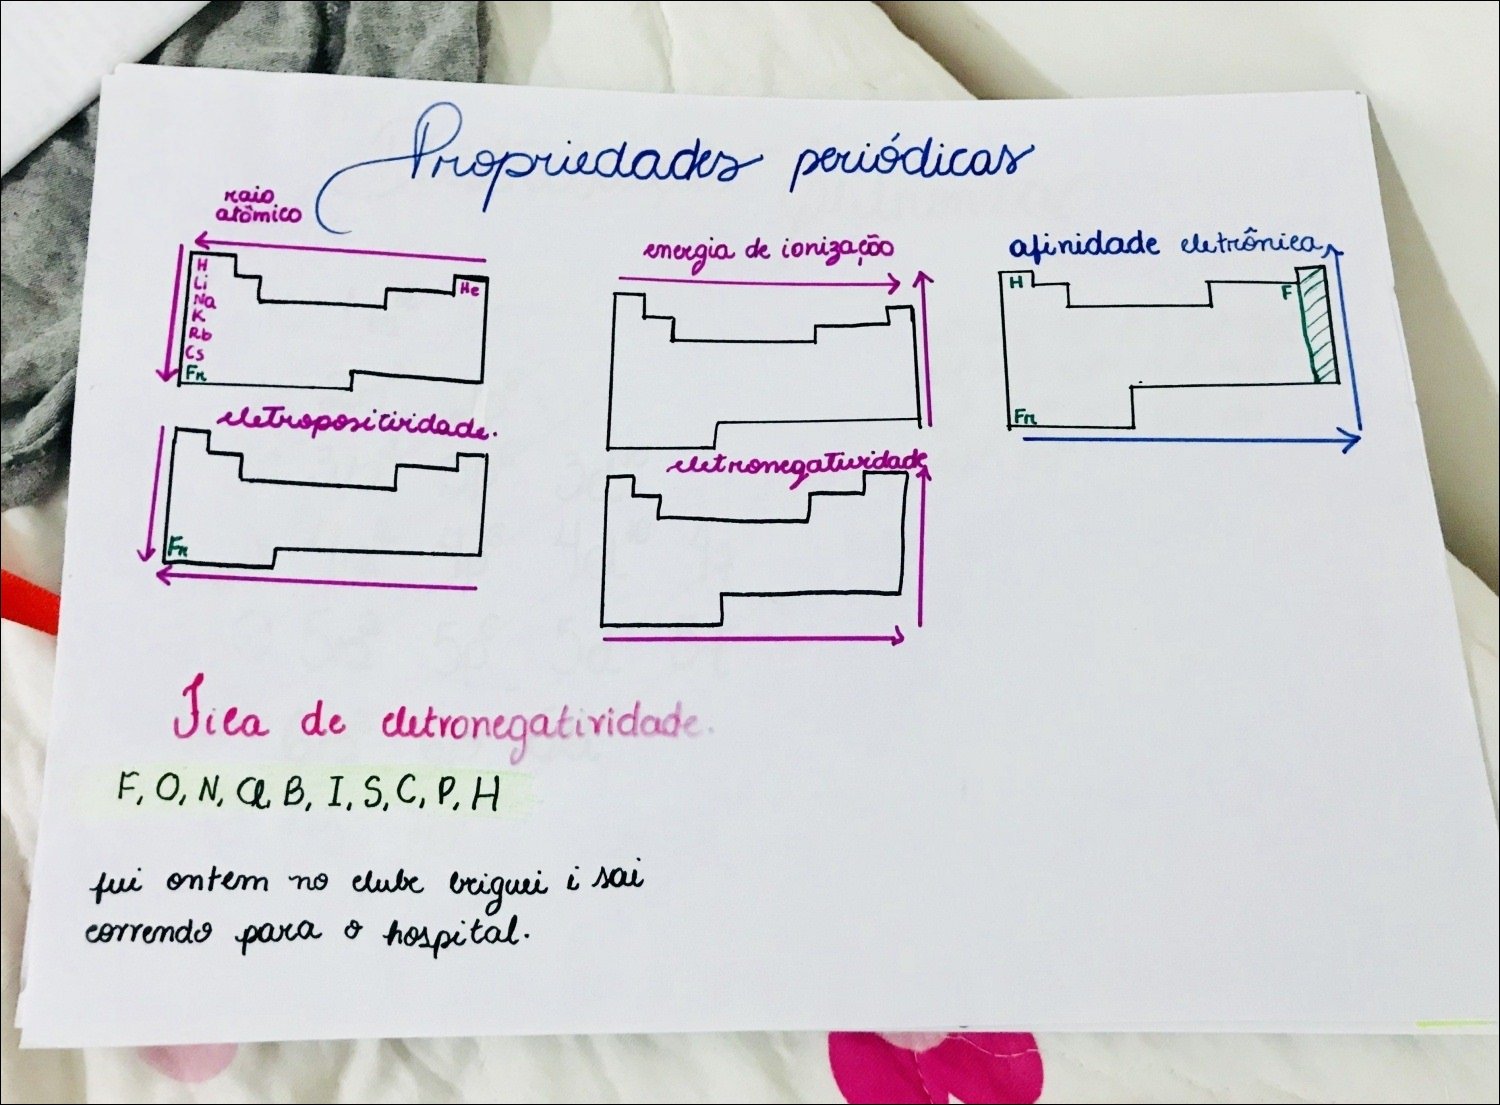 Propriedades periódicas
raio
atômico
H
Li
Na
K
Rb
Cs
Fr
He
energia de ionização
afinidade eletrônica
H
F
Fr
eletropositividade.
Fr
eletronegatividade
Fila de eletronegatividade.
F, O, N, Cl, B, I, S, C, P, H
fui ontem no clube briguei i sai
correndo para o hospital.